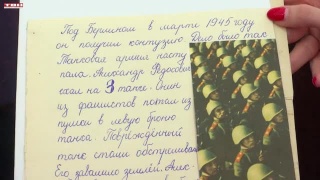 Под Берлином в марте 1945 году
он получил контузию. Дело было так.
Танковая армия насту
пала. Александр Федосович
ехал на 3 танке. Один
из фашистов попал из
пушки в левую броню
танка. Повреждённый
танк стали обстреливат
Его завалило землёй. Алек-